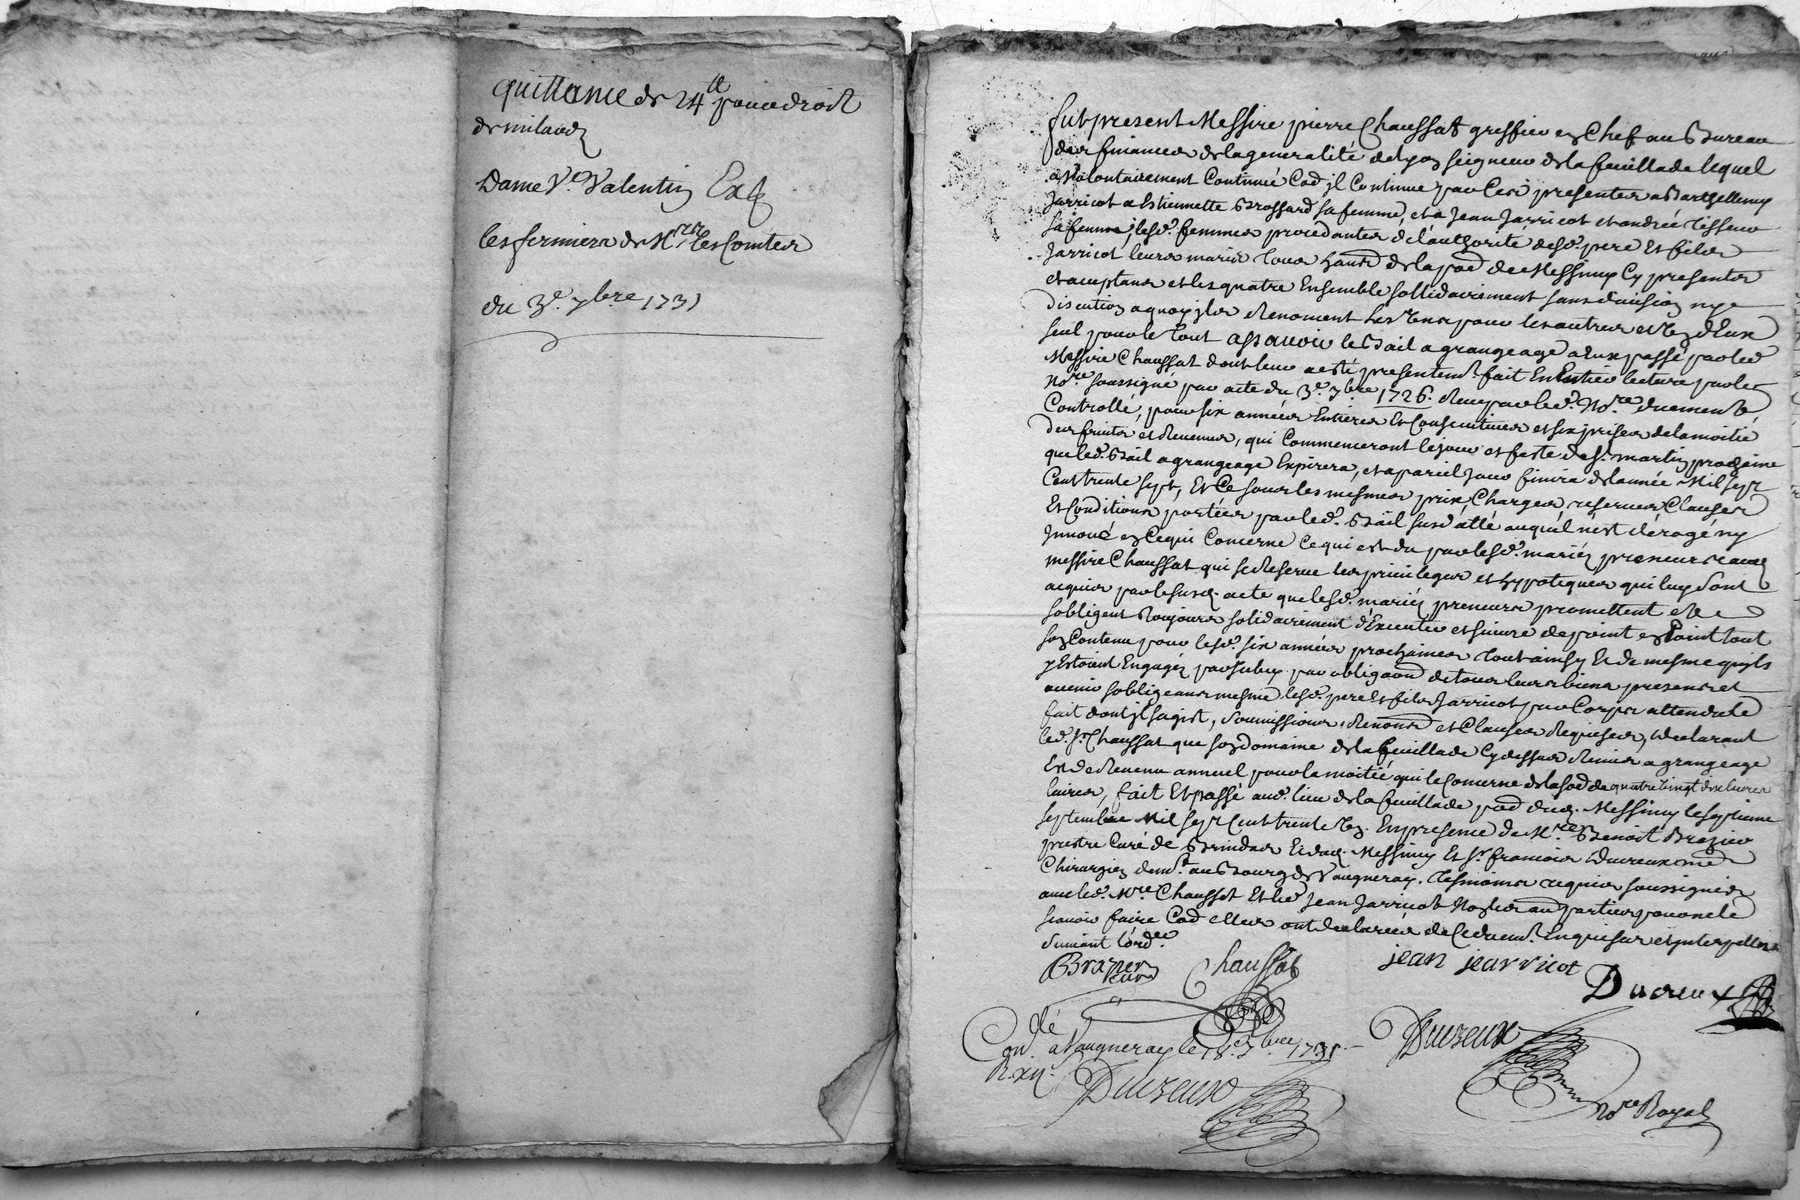 quittance de 24ᵗᵗ pour droit
de milaod
Dame Vᵉ. Valentin Exp
les fermiers de Mʳˢ les Comtes
du 3ᵉ. 7bre 1731
fut present Messire pierre Chaussat greffier en Chef au Bureau
des finances de la generalité de lyon seigneur de la feuillade lequel
a Volontairement Continué Cōe jl Continue par Ces presentes a Barthellemy
Jarricot et Estiennette Brossard sa femme, et a Jean Jarricot et andrée Tisseur
sa femme, lesd. femmes procedantes de l'authorité desd. pere et fils
Jarricot leurs maris tous habts de la pōe de Messimy Cy presents
et acceptans et les quatre Ensemble sollidairement sans division ny
discution a quoy jls Renoncent Les Uns pour les autres et Un d'Eux
seul pour le tout assavoir le Bail a grangeage a Eux passé par led
Messire Chaussat dont leur a esté presentemt. fait Entiere lecture par le
Noʳᵉ soussigné par acte du 3ᵉ. 7bre 1726. Receu par led. Noʳᵉ duement
Controllé, pour six années Entieres Et Consecutives et six prises de la moitié
des fruits et Revenus, qui Commenceront le jour et feste de St. martin prochaine
que led. Bail a grangeage Expirera, et a pareil jour finira de l'année Mil sept
Cent trente sept, Et Ce sous les mesmes prix, Charges, reserves Clauses
Et Conditions portées par led. Bail susd'atté auquel n'est dérogé ny
Jnnové en Ce qui Concerne Ce qui est du par lesd. mariez preneurs aud
messire Chaussat qui se Reserve les privileges et hypoteques qui luy sont
acquis par le susd. acte que lesd. mariez preneurs promettent et
s'obligent toujours solidairement d'Executer et suivre de point en Point tout
son Contenu pour lesd. six années prochaines tout ainsy Et de mesme qu'jls
y Estoient Engagez par jcelui par obligaōn de tous leurs biens presens et
avenir s'obligeans mesme lesd. pere Et fils Jarricot par Corps attendu le
fait dont jl s'agist, soumissions, Renonōns et Clauses Requises, declarant
led. Sr. Chaussat que son domaine de la feuillade Cy dessus Remis a grangeage
Est de Revenu annuel pour la moitié qui le Concerne de la sōe de quatre vingt dix livres
fait Et passé aud. lieu de la feuillade pōe dud. Messimy le septieme
septembre Mil sept Cent trente Un. En presence de Mʳᵉ Benoist Brazier
prestre Curé de Brindas Et dud. Messimy Et Sʳ. francois Ducreux me
Chirurgien demt. au Bourg de Vaugneray. tesmoins requis soussignés
avec led. Mʳᵉ Chaussat Et led Jean Jarricot Non les autres parties pour ne le
scavoir faire Cōe Elles ont declarées de Ce duemt. Enquises et jnterpellées
suivant l'ordᶜᵉ
Brazier Curé Chaussat jean jearricot
Ducreux
Conᵗˡᵉ a Vaugneray le 18ᵉ. 7bre 1731.
R. xijs. Ducreux Ducreux
Noʳᵉ Royal